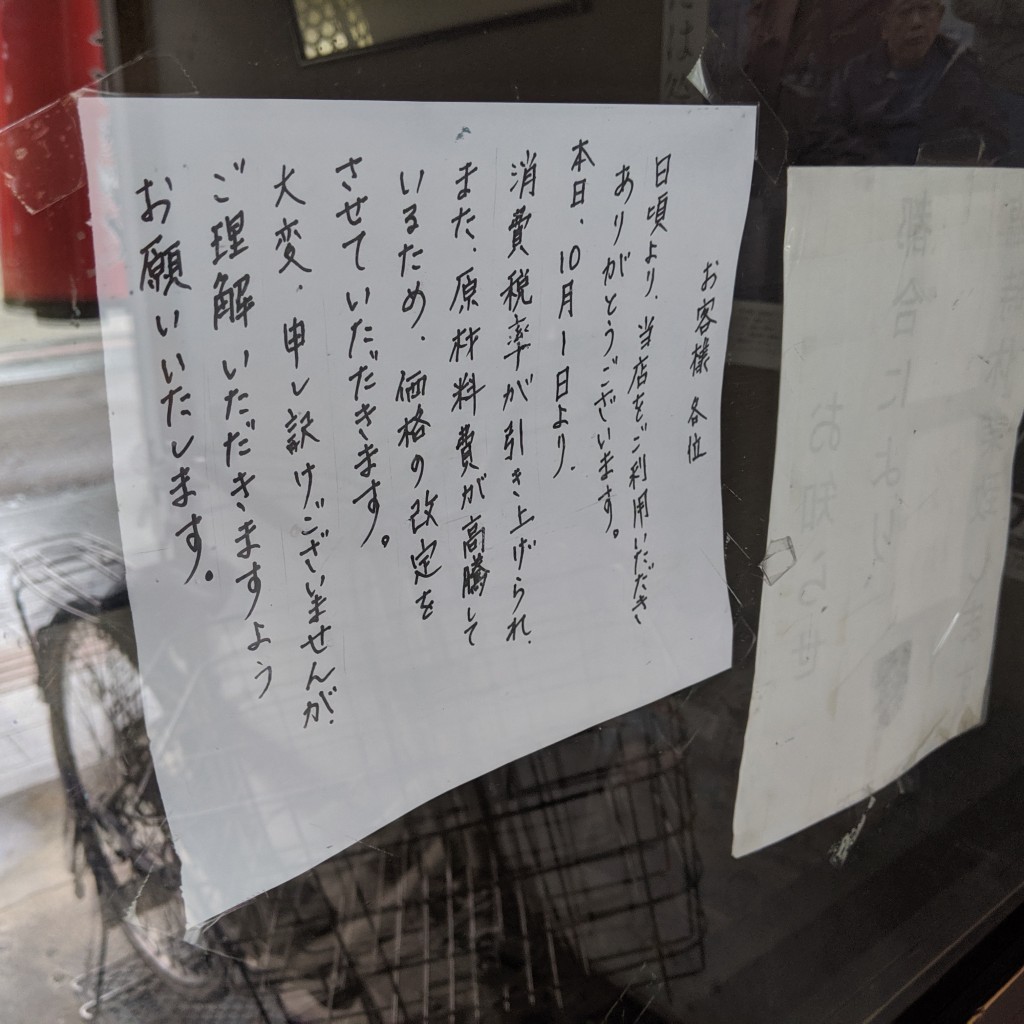 お客様 各位
日頃より、当店をご利用いただき
ありがとうございます。
本日、10月1日より、
消費税率が引き上げられ、
また、原材料費が高騰して
いるため、価格の改定を
させていただきます。
大変、申し訳けございませんが、
ご理解いただきますよう
お願いいたします。
お知らせ
都合により、